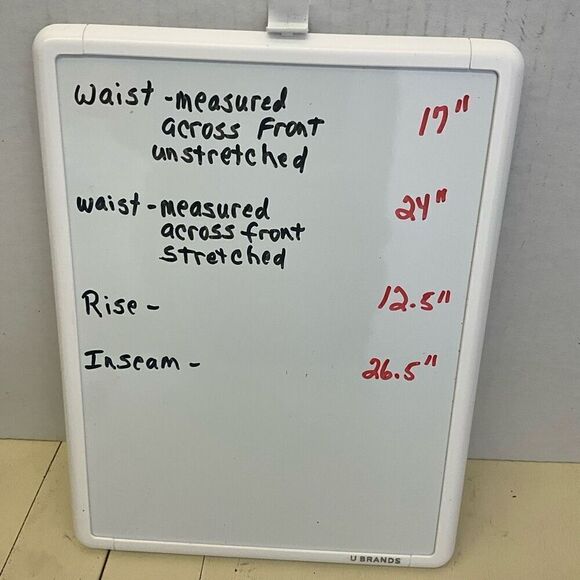 Waist - measured 17"
across Front
unstretched
waist - measured 24"
across front
stretched
Rise - 12.5"
Inseam - 26.5"
U BRANDS